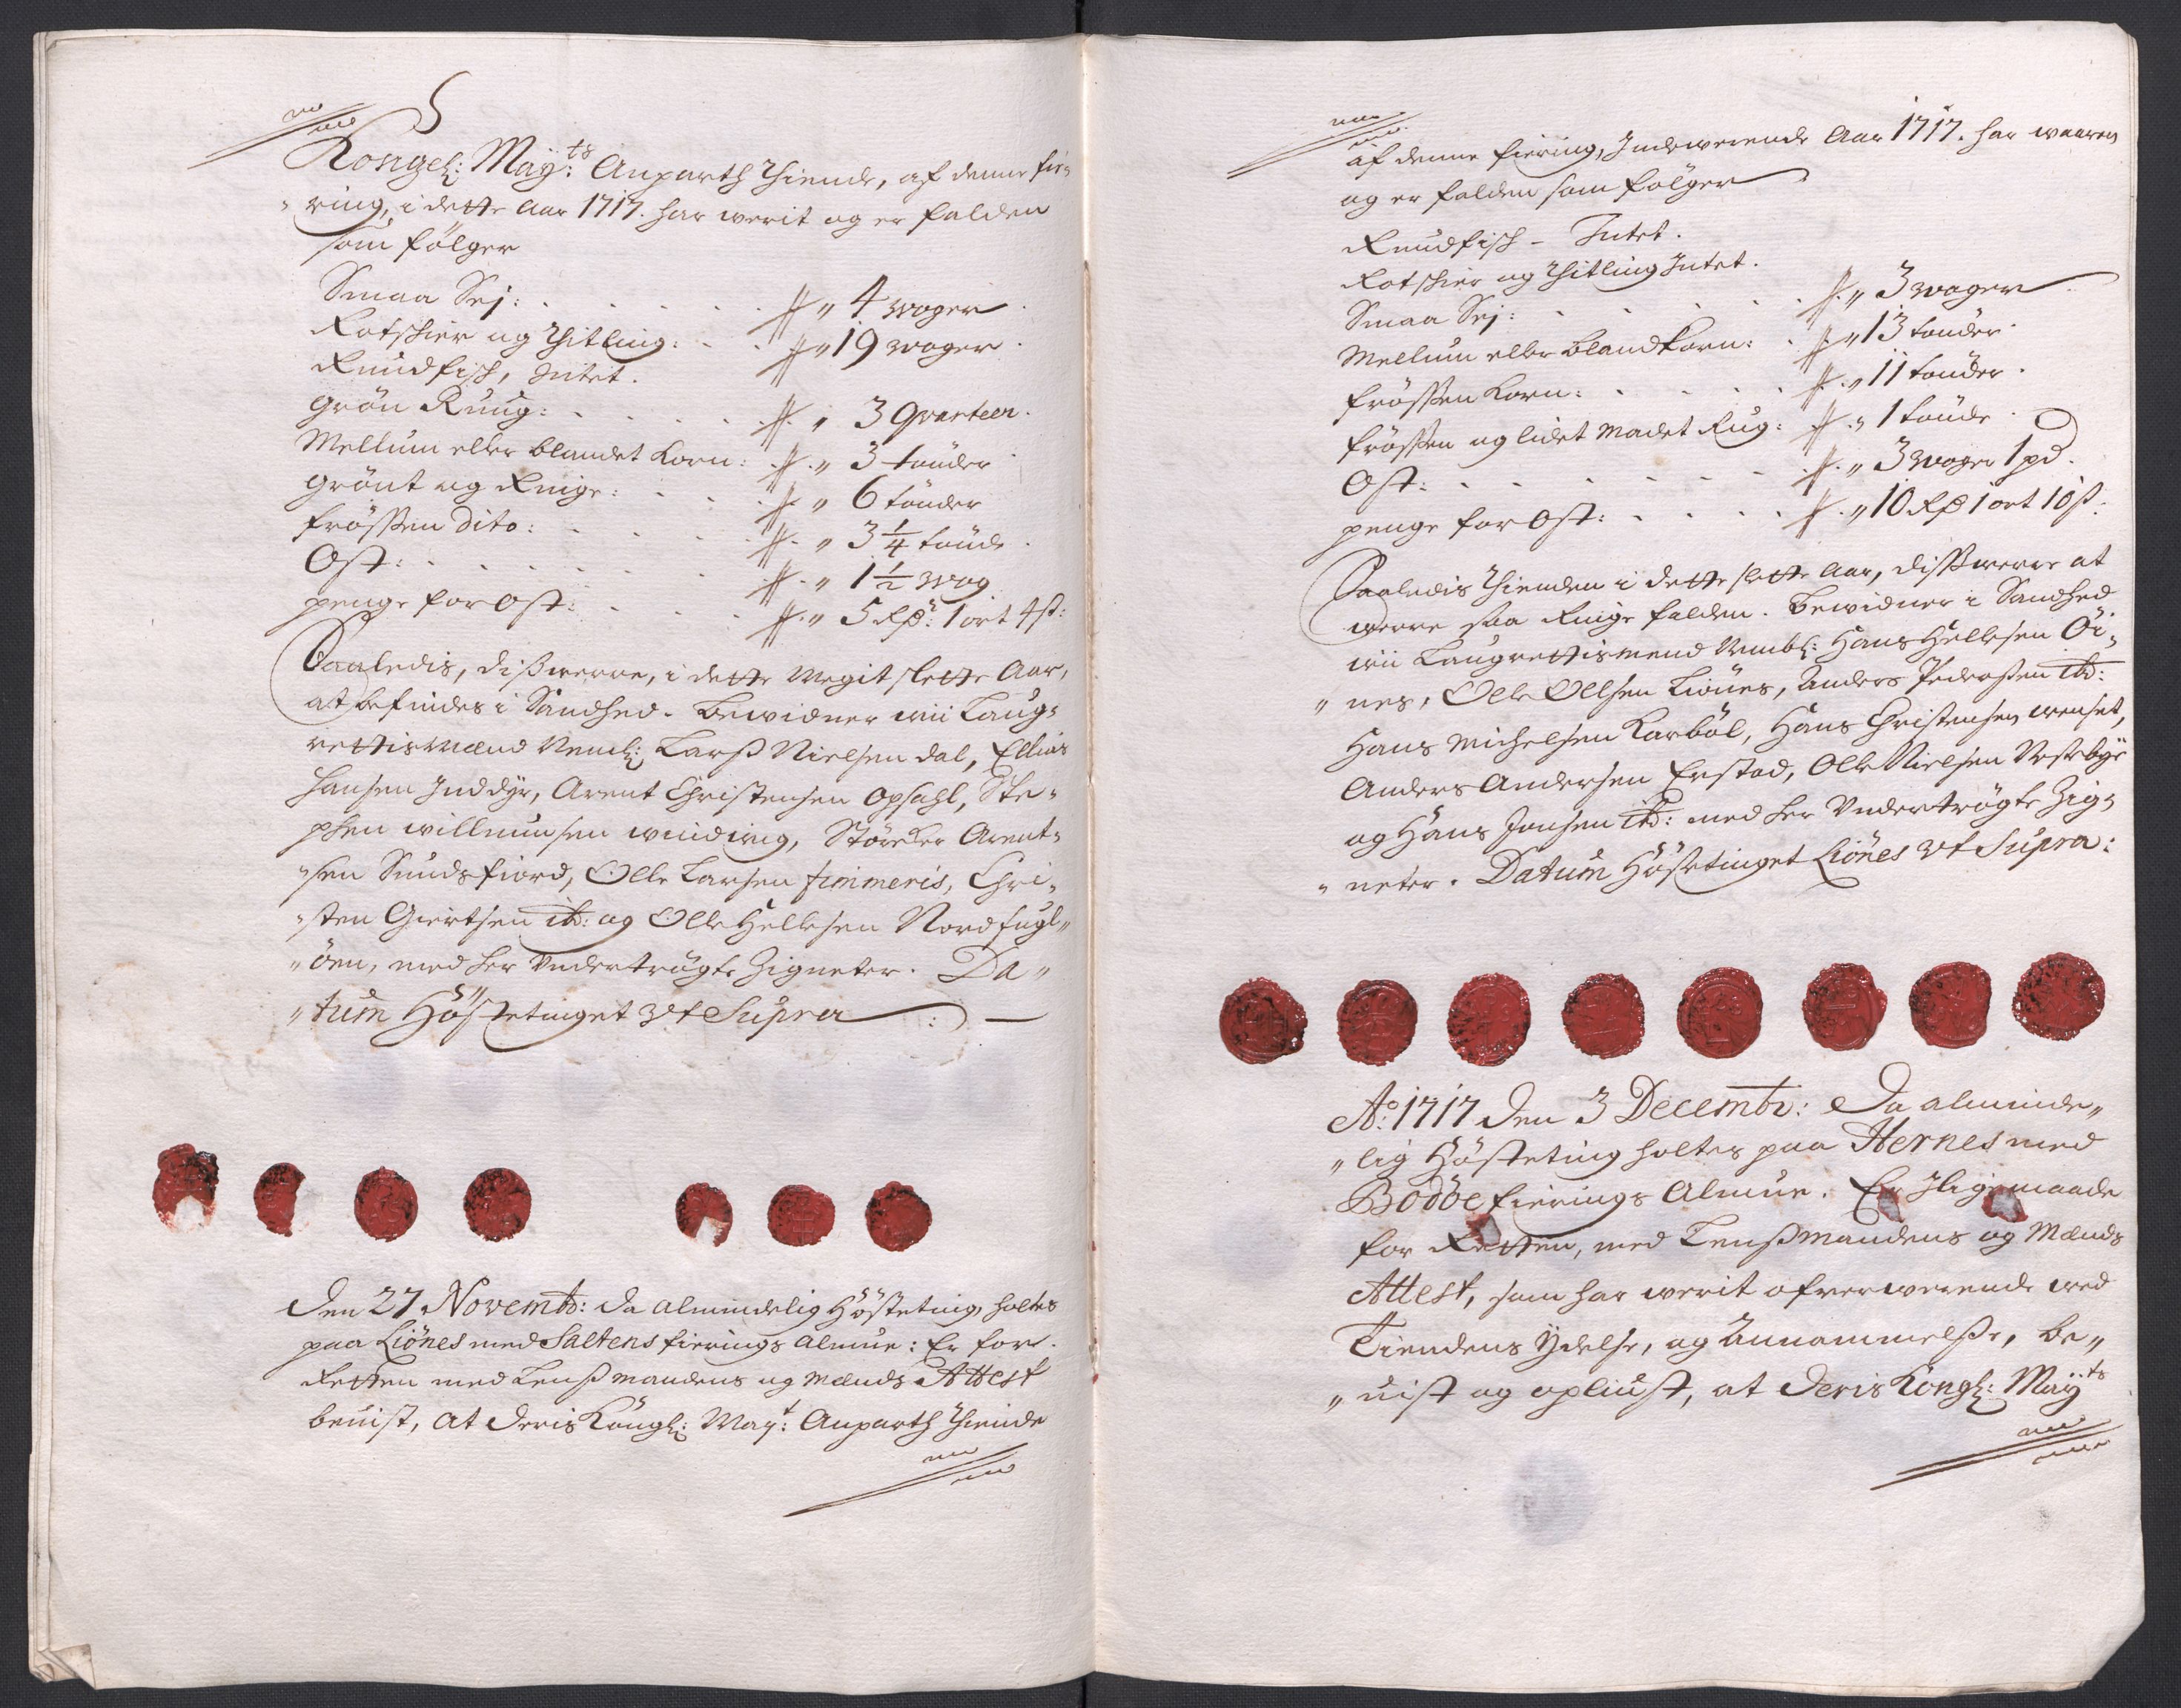 Kongel: May:ts Anparth Thiende, af denne fie-
„ring, i dette Aar 1717. har werit og er falden
som følger
Smaa Sej: . . . # „ 4 woger
Rotskier og Thitling: . . # „ 19 woger
Rundfisch, Intet.
Grøn Ruug: . . . # „ 3 Qvarteer.
Mellum eller blandet Korn: . # „ 3 tønder
Grønt og Ringe: . . . # „ 6 tønder
Frøssen Dito: . . . # „ 3 1/4 tønde
Ost: . . . # „ 1 1/2 wog
penge for Ost: . . . # „ 5 Rdr: 1 ort 4 ß:
Saaledis, dissverre, i dette Megit slette Aar,
at befindes i Sandhed. Bewidner wii Laug-
rettismænd Neml: Larss Nielsen Dal, Ellias
Hansen Inddyr, Arent Christensen Opsahl, Ste-
phen willumsen, Størcker Arent-
„sen Sundsfiord, Olle Larsen Fimmeris, Chri-
„sten Giertsen ibd: og Olle Hellesen Nordfugl-
„øen, med her Undertrøgte Zigneter. Da„
„tum Høstetinget Ut Supra
Den 27 Novembr: da almindelig Høsteting holtes
paa Liønes med Saltens fierings Almue: Er for
Retten med Lenssmandens og Mænds Attest
beuist, at Deris Kongl: May:t Anparth Thiende
af denne fiering, Indeværende Aar 1717. har waaren
og er falden som følger
Rundfisch - Intet.
Rotskier og Thitling Intet.
Smaa Sej: . . . # „ 3 woger
Mellum eller blandkorn: . # „ 13 tønder
Frøssen Korn: . . . # „ 11 tønder.
Frøssen og lidet Madet Rug: # „ 1 tønde
Ost: . . . # „ 3 woger 1 pd.
penge for Ost: . . . # „ 10 Rdr 1 ort 10 ß:
Saaledis Thienden i dette slette Aar, dissverre at
werre saa Ringe falden. Bewidner i Sandhed
wii Laugrettismend Nembl: Hans Hellesen Øi-
„nes, Olle Ollsen Liønes, Anders Pedersen ibd:
Hans Michelsen Karbøl, Hans Christensen wenset,
Anders Andersen Erstad, Olle Nielsen Westbye
og Hans Jonsen ibd: med her Undertrøgte Zig-
„neter. Datum Høstetinget Liønes Ut Supra:
Ao: 1717 Den 3 Decembr: Da alminde„
„lig Høsteting holtes paa Hernes med
Bodøe fierings Almue. Er Iligemaade
for Retten, med Lenssmandens og Mænds
Attest, som har werit ofverwerende wed
Tiendens Ydelse, og Annammelsse, be„
„uist og opliust, at Deris Kongl: May:ts